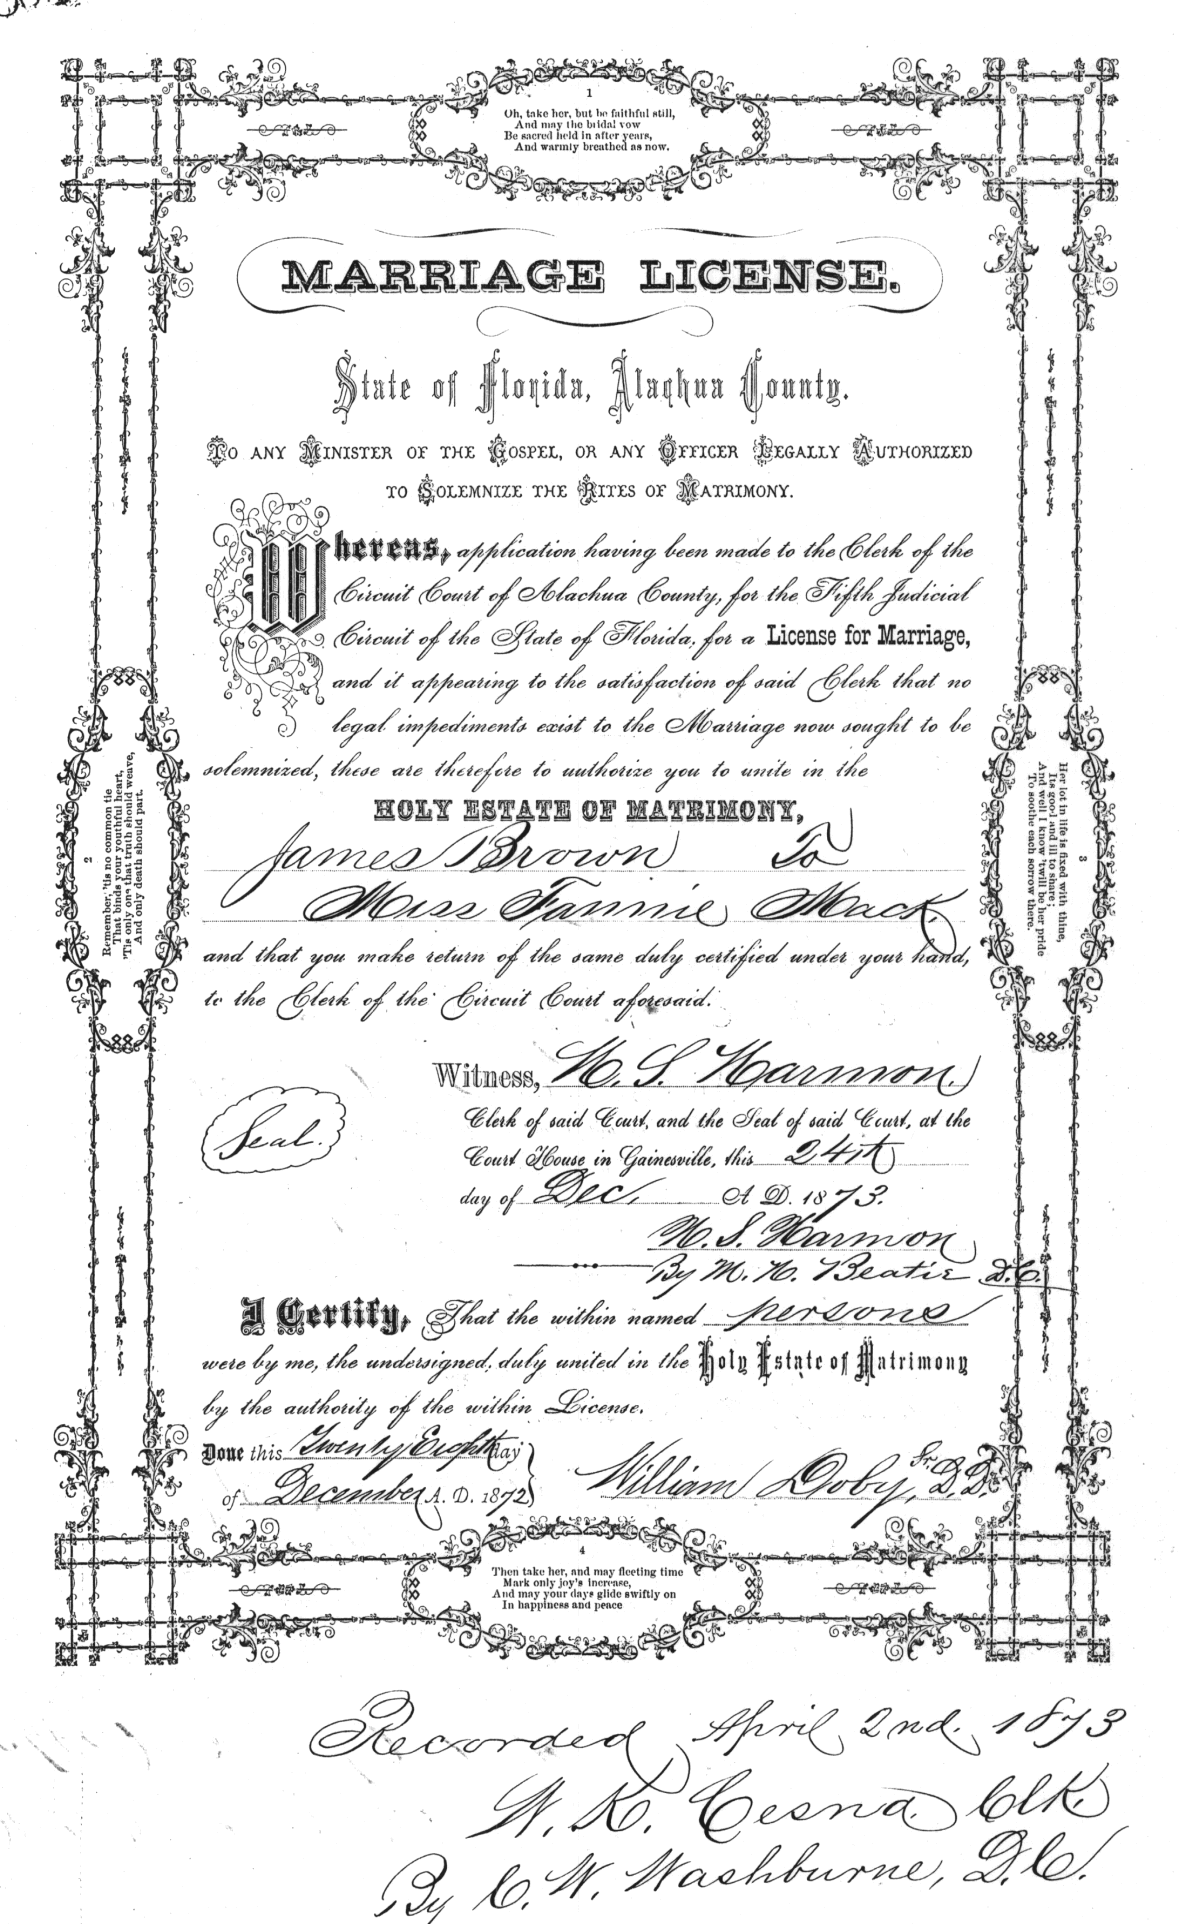 1
Oh, take her, but be faithful still,
And may the bridal vow
Be sacred held in after years,
And warmly breathed as now.
MARRIAGE LICENSE.
State of Florida, Alachua County.
TO ANY MINISTER OF THE GOSPEL, OR ANY OFFICER LEGALLY AUTHORIZED
TO SOLEMNIZE THE RITES OF MATRIMONY.
Whereas, application having been made to the Clerk of the
Circuit Court of Alachua County, for the Fifth Judicial
Circuit of the State of Florida, for a License for Marriage,
and it appearing to the satisfaction of said Clerk that no
legal impediments exist to the Marriage now sought to be
solemnized, these are therefore to authorize you to unite in the
HOLY ESTATE OF MATRIMONY,
James Brown To
Miss Fannie Mack
and that you make return of the same duly certified under your hand,
to the Clerk of the Circuit Court aforesaid.
2
Remember, 'tis no common tie
That binds your youthful heart,
'Tis only one that truth should weave,
And only death should part.
3
Her lot in life is fixed with thine,
Its good and ill to share;
And well I know 'twill be her pride
To soothe each sorrow there.
Witness, H. S. Harmon.
Seal.
Clerk of said Court, and the Seal of said Court, at the
Court House in Gainesville, this 24th
day of Dec. A. D. 1873.
H. S. Harmon
By M. H. Beatie D.C.
I Certify, That the within named persons
were by me, the undersigned, duly united in the Holy Estate of Matrimony
by the authority of the within License.
Done this Twenty Eighth day
of December A. D. 1872
William Doby, Sr. D.D.
4
Then take her, and may fleeting time
Mark only joy's increase,
And may your days glide swiftly on
In happiness and peace
Recorded April 2nd. 1873
W. K. Cesna Clk.
By C. W. Washburne, D.C.